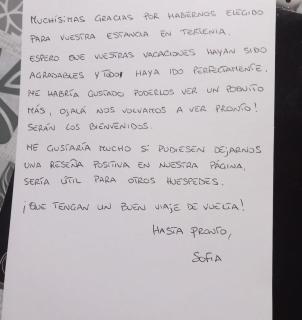 MUCHÍSIMAS GRACIAS POR HABERNOS ELEGIDO
PARA VUESTRA ESTANCIA EN TERTENIA.
ESPERO QUE VUESTRAS VACACIONES HAYAN SIDO
AGRADABLES Y TODO HAYA IDO PERFECTAMENTE.
ME HABRÍA GUSTADO PODERLOS VER UN POQUITO
MÁS, OJALÁ NOS VOLVAMOS A VER PRONTO!
SERÁN LOS BIENVENIDOS.
ME GUSTARÍA MUCHO SI PUDIESEN DEJARNOS
UNA RESEÑA POSITIVA EN NUESTRA PÁGINA,
SERÍA ÚTIL PARA OTROS HUESPEDES.
¡QUE TENGAN UN BUEN VIAJE DE VUELTA!
HASTA PRONTO,
SOFIA